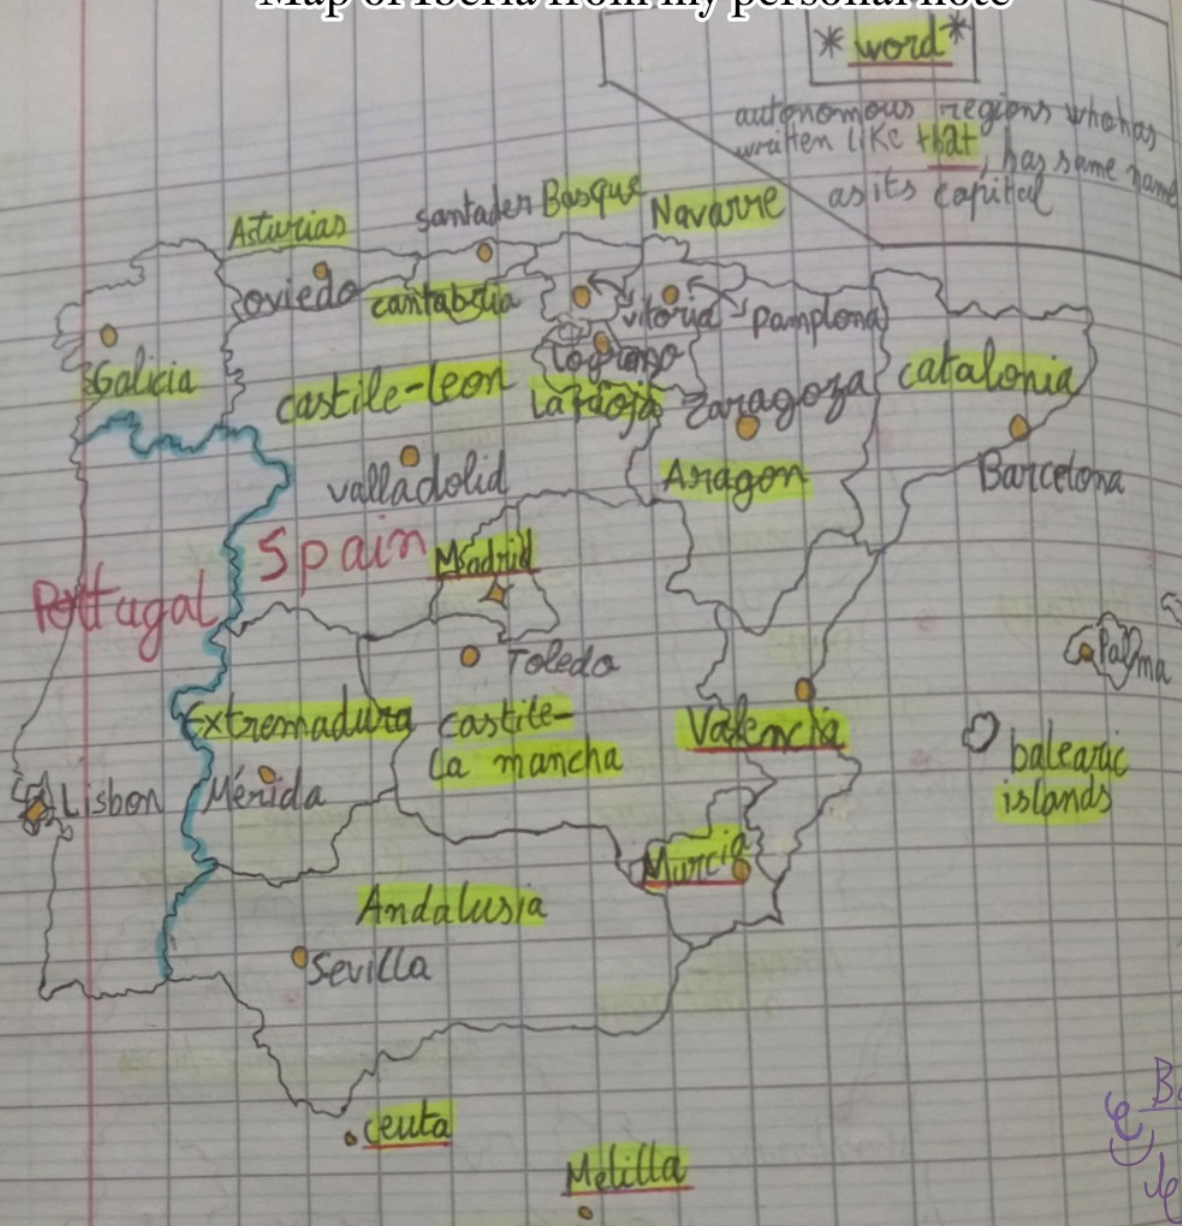 Map of Iberia from my personal note
* word *
autonomous regions who has
written like that, has same name
as its capital
Asturias
santader
Basque
Navarre
oviedo
cantabria
vitoria
Pamplona
Galicia
castile-leon
Logrono
La rioja
Zaragoza
catalonia
valladolid
Aragon
Barcelona
Spain
Madrid
Portugal
Toledo
Palma
Extremadura
castile-
La mancha
Valencia
balearic
islands
Lisbon
Mérida
Murcia
Andalusia
Sevilla
ceuta
Melilla